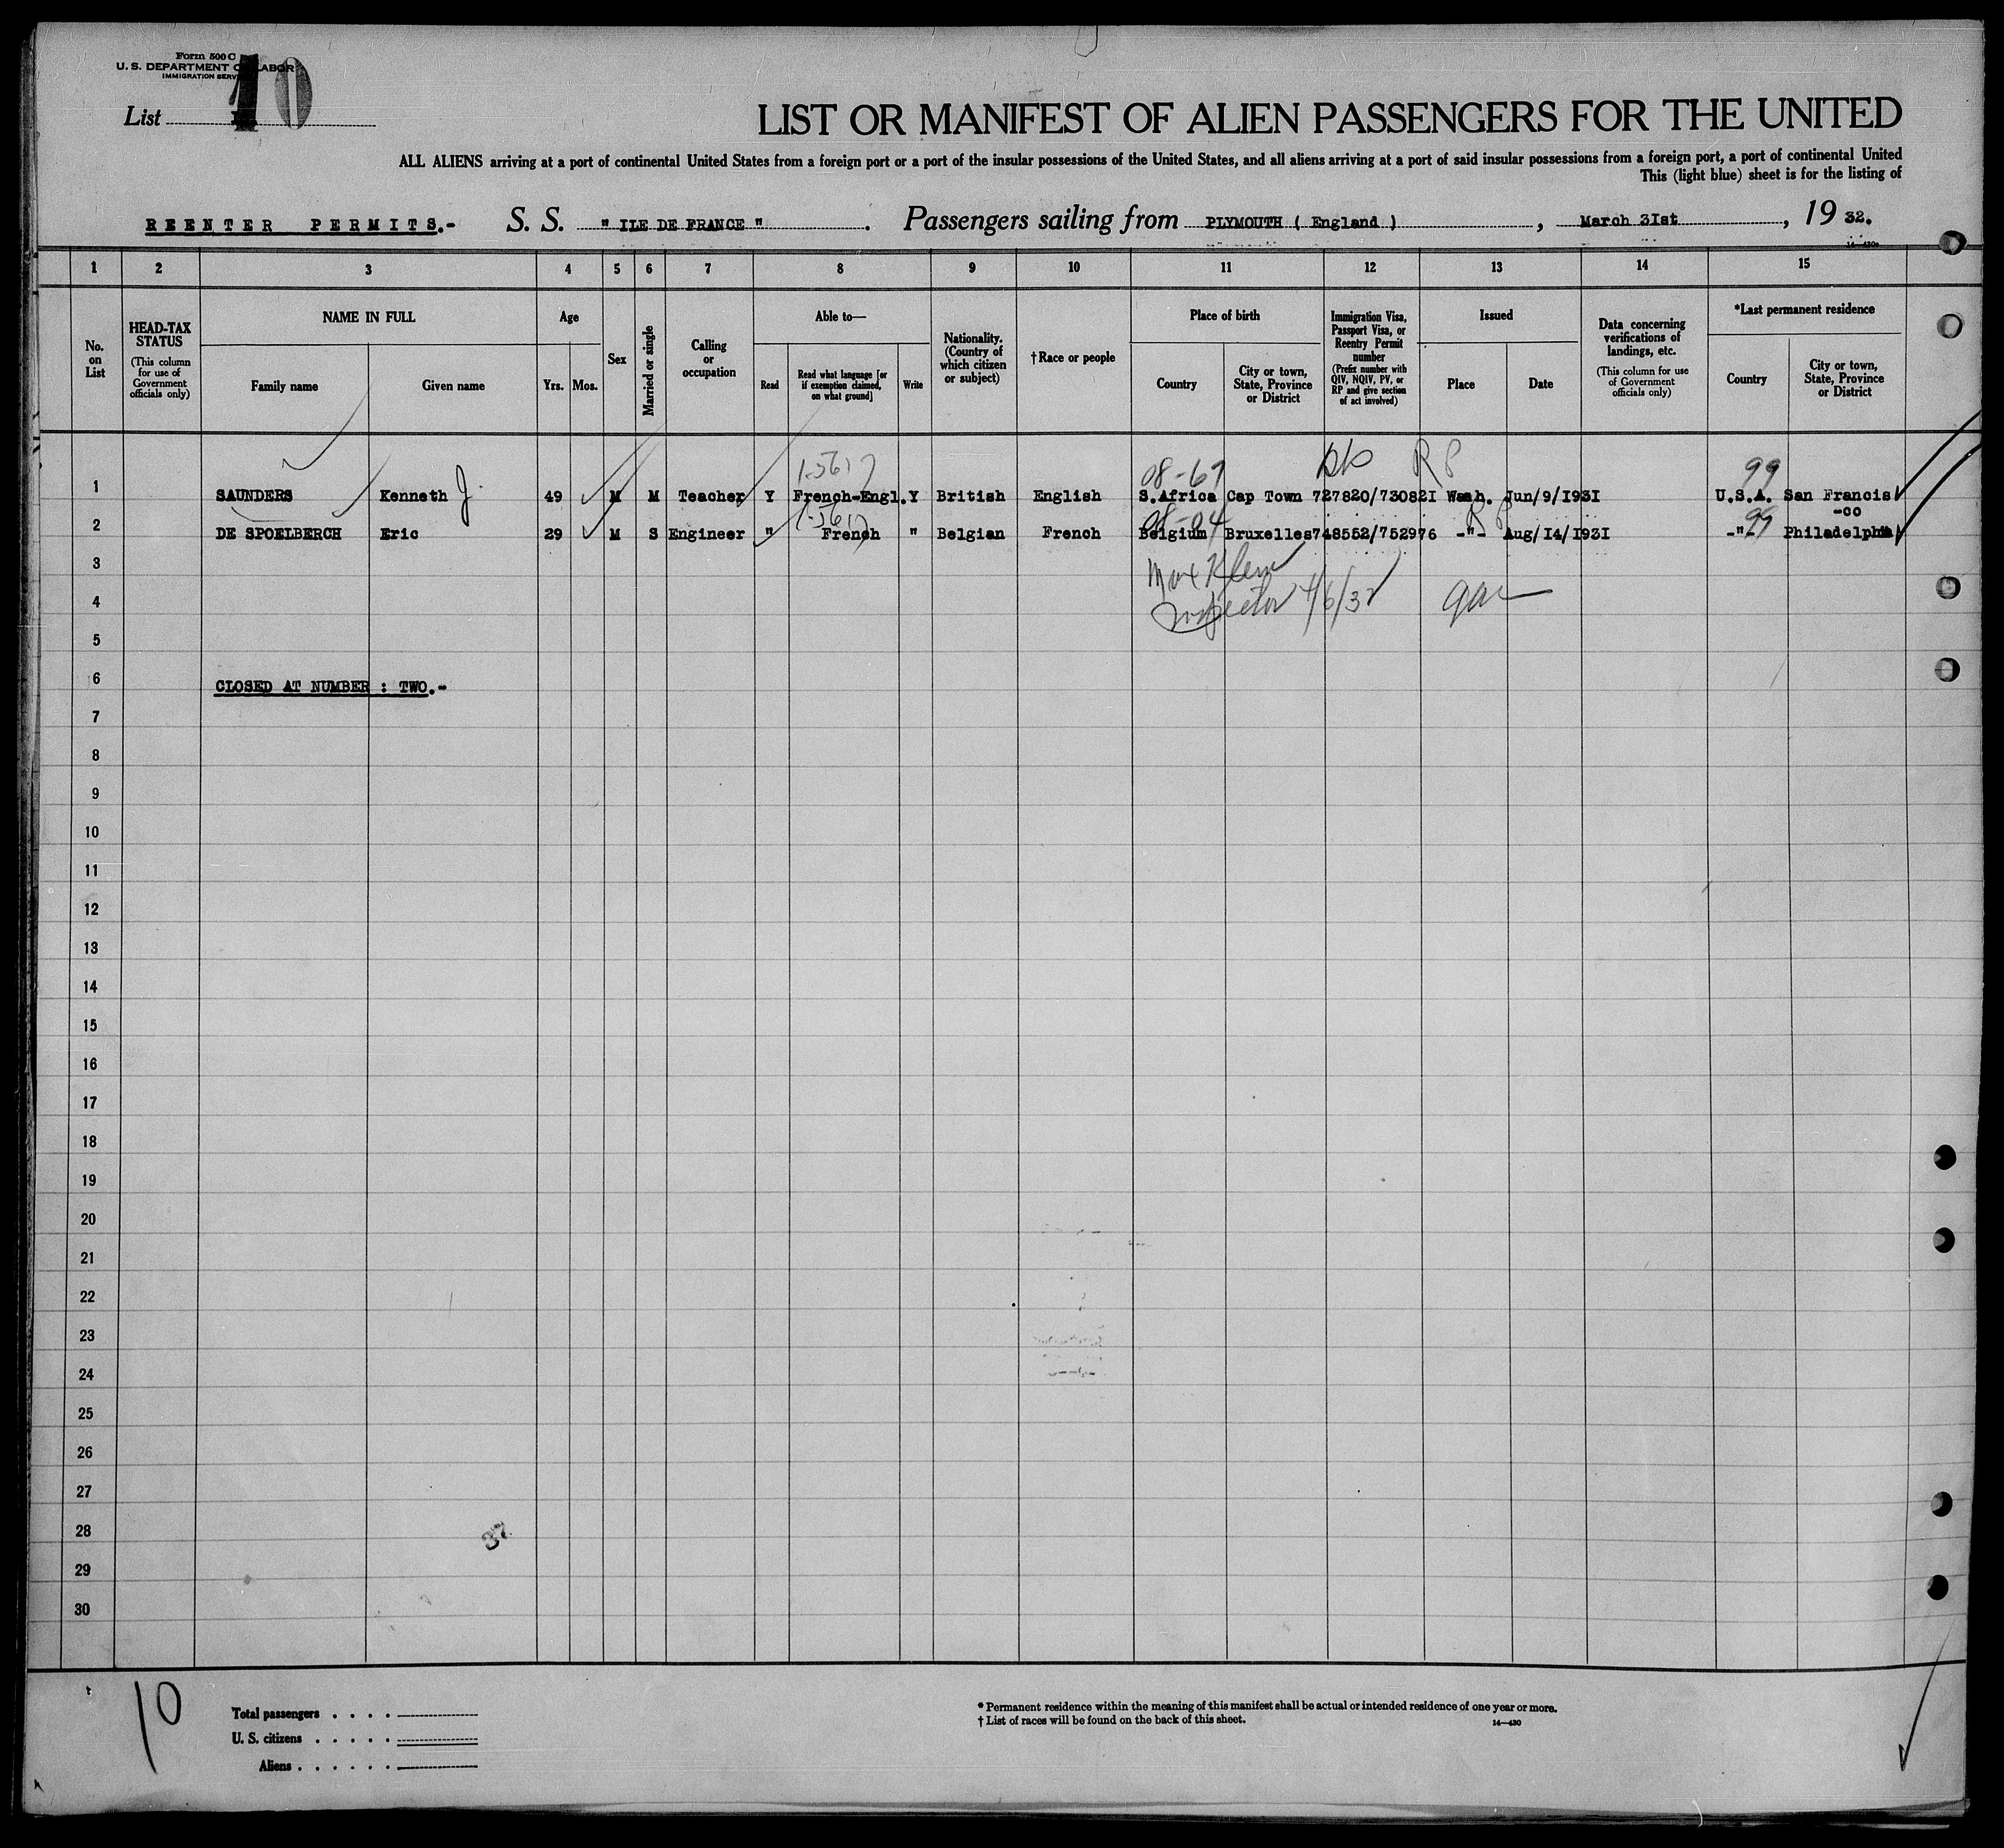 Form 500 C
U. S. DEPARTMENT OF LABOR
IMMIGRATION SERV
List 10
LIST OR MANIFEST OF ALIEN PASSENGERS FOR THE UNITED
ALL ALIENS arriving at a port of continental United States from a foreign port or a port of the insular possessions of the United States, and all aliens arriving at a port of said insular possessions from a foreign port, a port of continental United
This (light blue) sheet is for the listing of
REENTER PERMITS.- S. S. " ILE DE FRANCE ". Passengers sailing from PLYMOUTH ( England ), March 3Ist, 19 32.
1 2 3 4 5 6 7 8 9 10 11 12 13 14 15
No. on List
HEAD-TAX STATUS (This column for use of Government officials only)
NAME IN FULL
Family name Given name
Age
Yrs. Mos.
Sex
Married or single
Calling or occupation
Able to—
Read
Read what language [or if exemption claimed, on what ground]
Write
Nationality. (Country of which citizen or subject)
†Race or people
Place of birth
Country
City or town, State, Province or District
Immigration Visa, Passport Visa, or Reentry Permit number (Prefix number with QIV, NQIV, PV, or RP and give section of act involved)
Issued
Place Date
Data concerning verifications of landings, etc. (This column for use of Government officials only)
*Last permanent residence
Country
City or town, State, Province or District
08-67 RP 99
1 SAUNDERS Kenneth J. 49 M M Teacher Y French-Engl. Y British English S.Africa Cap Town 727820/73082I Wash. Jun/9/I93I U.S.A. San Francis
-co
08-04 RP 99
2 DE SPOELBERCH Eric 29 M S Engineer " French " Belgian French Belgium Bruxelles 748552/752976 -"- Aug/I4/I93I -"- Philadelphia
3 Max Klein
4 Inspector 4/6/32
5
6 CLOSED AT NUMBER : TWO.-
7
8
9
10
11
12
13
14
15
16
17
18
19
20
21
22
23
24
25
26
27
28 37
29
30
10
Total passengers
U. S. citizens
Aliens
* Permanent residence within the meaning of this manifest shall be actual or intended residence of one year or more.
† List of races will be found on the back of this sheet. 14—430